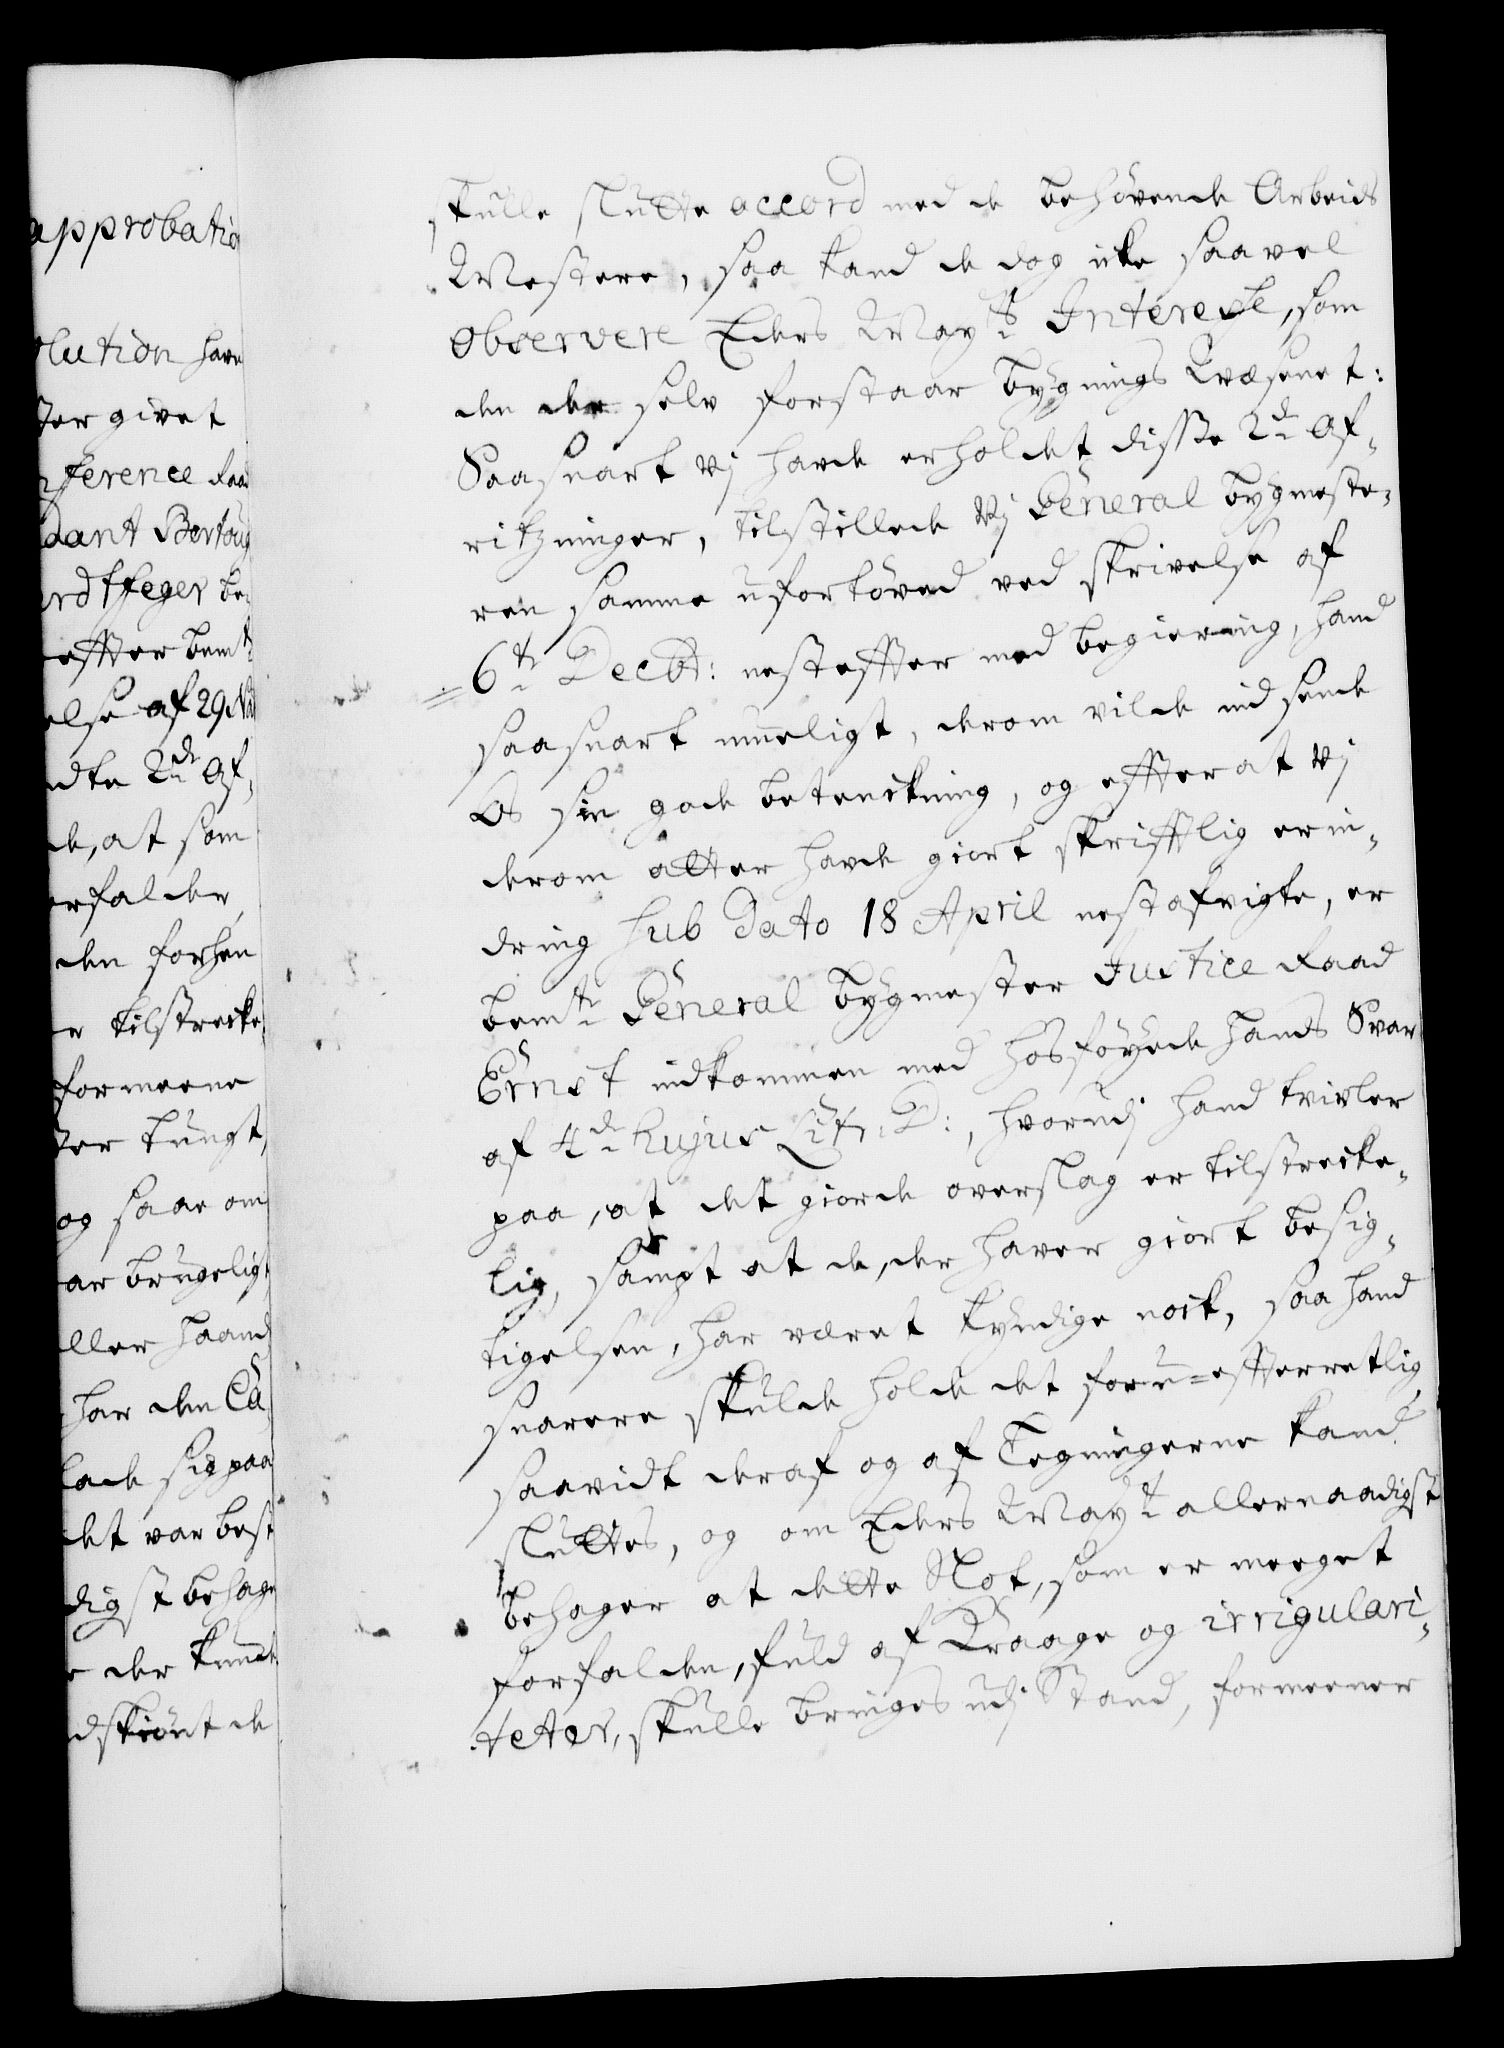 approbatio
olution have
ter givet
nference Raad
dant Bertoug
ordt Jeger be,
effter bemte
else af 29 No
ndte 2de Af,
de, at som
erfalder
den forhen
er tilstrecke,
formeene
ter tungt,
og saae om
ar brugeligt
ller haand
har den Ca,
lade sig paa
det var best
digst behage
e der kunde
dskiönt de
skulle slutte accord med de behövende Arbeids
Mestere, saa kand de dog icke saavel
observere Eders Mayts Interesse, som
den der selv forstaar bygnings Kvæsenet:
Saasnart vj havde erholdet disse 2de Af,
ritzninger, tilstillede Vj General bygmeste,
ren samme ufortöved ved skrivelse af
6te Decbr: nesteffter med begiering, hand
saasnart mueligt, derom vilde indsende
Os sin gode betenckning, og effterat vj
derom atter havde giort skrifftlig erin,
dring sub dato 18 April nestafvigte, er
bemte General bygmester Justice Raad
Ernst indkommen med hosföyede hands Svar
af 4de hujus Litr: D:, hvorudj hand tvivler
paa, at det giorde overslag er tilstrecke,
lig, sampt at de, der haver giort besig,
tigelsen, har været kyndige nock, saa hand
snarere skulde holde det for u-effterretlig
saavidt deraf og af Tegningerne kand
sluttes, og om Eders Mayt allernaadigst
behager at dette Slot, som er meeget
forfalden, fuld af Kraage og irrigulari,
teter, skulle bringes udj Stand, formeener